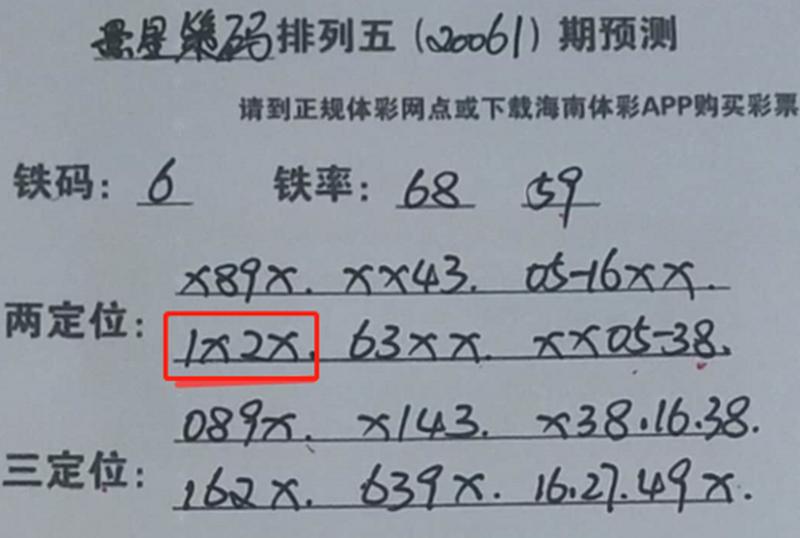 景星策码排列五(20061)期预测
请到正规体彩网点或下载海南体彩APP购买彩票
铁码: 6 铁率: 68 59
x89x. xx43. 05-16xx.
两定位:
1x2x. 63xx. xx05-38.
089x. x143. x38.16.38.
三定位:
162x. 639x. 16.27.49x.